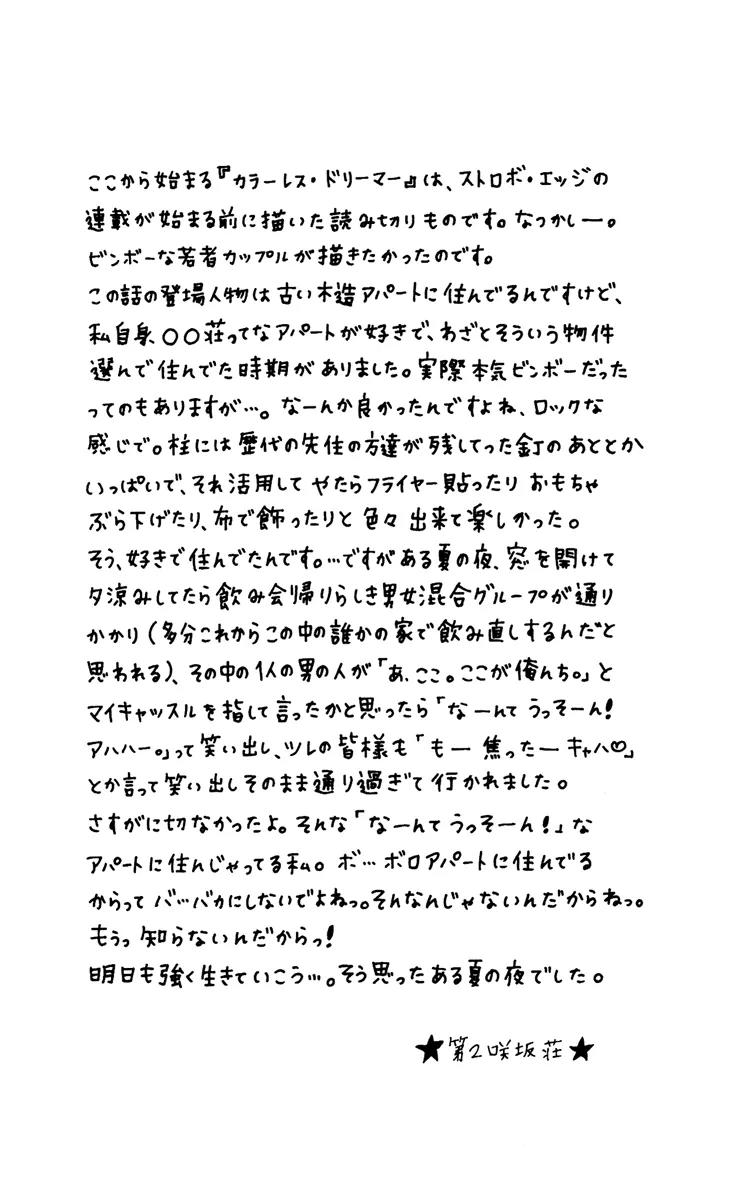 ここから始まる『カラーレス・ドリーマー』は、ストロボ・エッジの
連載が始まる前に描いた読み切りものです。なつかしー。
ビンボーな若者カップルが描きたかったのです。
この話の登場人物は古い木造アパートに住んでるんですけど、
私自身、○○荘ってなアパートが好きで、わざとそういう物件
選んで住んでた時期がありました。実際本気ビンボーだった
ってのもありますが…。なーんか良かったんですよね、ロックな
感じで。柱には歴代の先住の方達が残してった釘のあととか
いっぱいで、それ活用してやたらフライヤー貼ったりおもちゃ
ぶら下げたり、布で飾ったりと色々出来て楽しかった。
そう、好きで住んでたんです。…ですがある夏の夜、窓を開けて
夕涼みしてたら飲み会帰りらしき男女混合グループが通り
かかり(多分これからこの中の誰かの家で飲み直しするんだと
思われる)、その中の1人の男の人が「あ、ここ。ここが俺んち。」と
マイキャッスルを指して言ったかと思ったら「なーんてうっそーん!
アハハー。」って笑い出し、ツレの皆様も「もー焦ったーキャハ♡」
とか言って笑い出しそのまま通り過ぎて行かれました。
さすがに切なかったよ。そんな「なーんてうっそーん!」な
アパートに住んじゃってる私。ボ…ボロアパートに住んでる
からってバ…バカにしないでよねっ。そんなんじゃないんだからねっ。
もうっ知らないんだからっ!
明日も強く生きていこう…。そう思ったある夏の夜でした。
★第2咲坂荘★